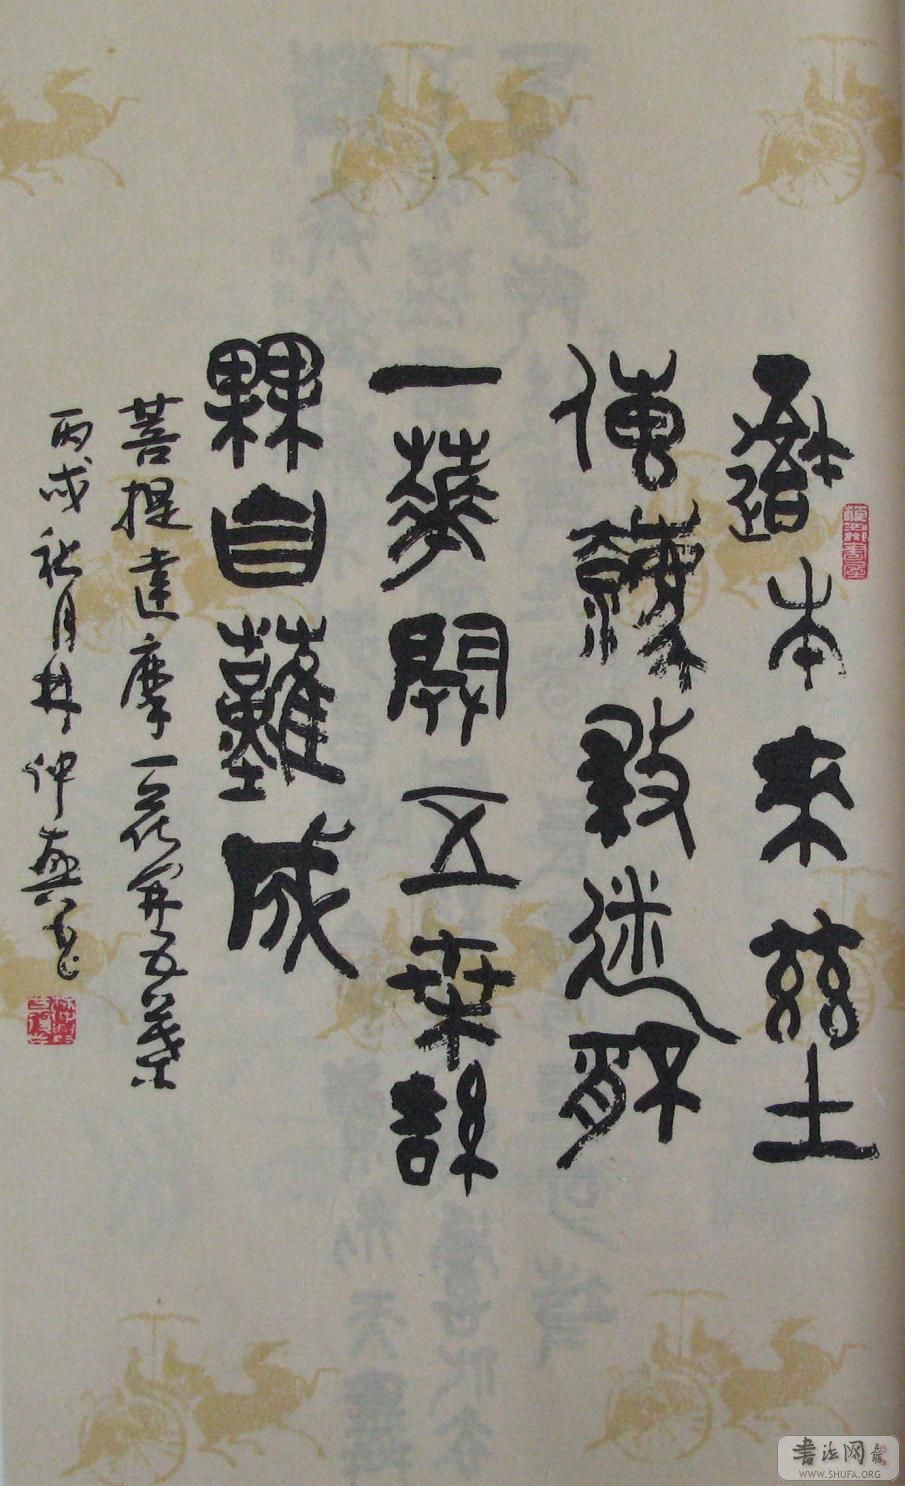 吾本來茲土
傳灋救迷情
一華開五枼結
果自然成
菩提達摩一花開五葉
丙戌秋月林仲興書
書法网
WWW.SHUFA.ORG